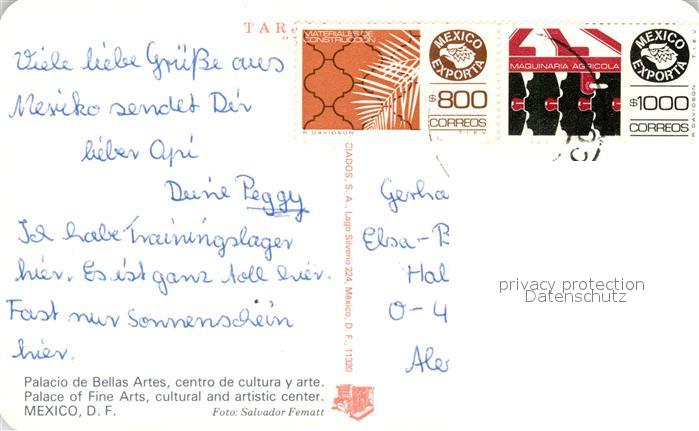 TARJ
Viele liebe Grüße aus
Mexiko sendet Dir
lieber Opi
Deine Peggy
Ich habe Trainingslager
hier. Es ist ganz toll hier.
Fast nur Sonnenschein
hier.
Palacio de Bellas Artes, centro de cultura y arte.
Palace of Fine Arts, cultural and artistic center.
MEXICO, D. F.
Foto: Salvador Fematt
CIADOS, S. A., Lago Silverio 224, México, D. F., 11320
MATERIALES DE
CONSTRUCCION
MEXICO
EXPORTA
$800
CORREOS
R. DAVIDSON
T.I.E.V.
MAQUINARIA AGRICOLA
MEXICO
EXPORTA
$1000
CORREOS
R. DAVIDSON
T.I.E.V.
Gerha
Elsa-B
Hal
O-4
privacy protection
Datenschutz